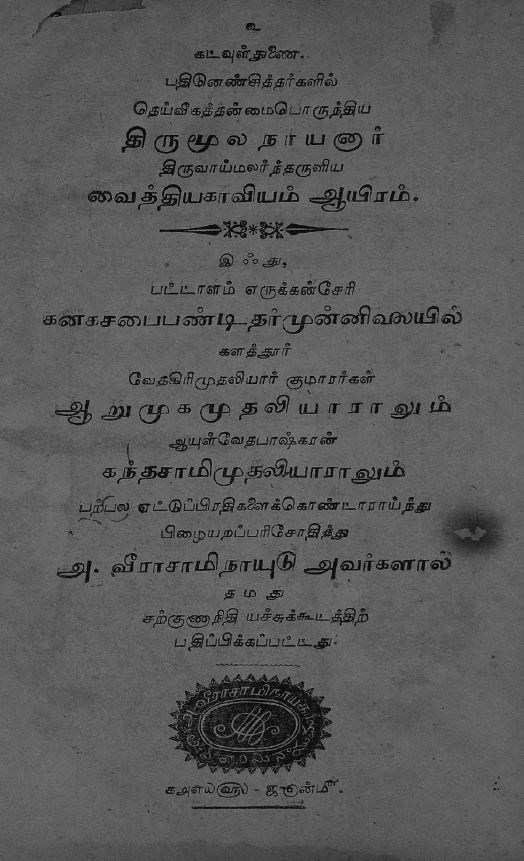 ௨
கடவுள்துணை.
பதினெண்சித்தர்களில்
தெய்வீகத்தன்மைபொருந்திய
திருமூலநாயனார்
திருவாய்மலர்ந்தருளிய
வைத்தியகாவியம் ஆயிரம்.
இஃது,
பட்டாளம் எருக்கன்சேரி
கனகசபைபண்டிதர்முன்னிலையில்
களத்தூர்
வேதகிரிமுதலியார் குமாரர்கள்
ஆறுமுகமுதலியாராலும்
ஆயுள்வேதபாஷ்கரன்
கந்தசாமிமுதலியாராலும்
பற்பல ஏட்டுப்பிரதிகளைக்கொண்டாராய்ந்து
பிழையறப்பரிசோதித்து
அ. வீராசாமிநாயுடு அவர்களால்
தமது
சற்குணநிதி யச்சுக்கூடத்திற்
பதிப்பிக்கப்பட்டது.
அ. வீராசாமிநாயுடு
ஜூன்மீ.